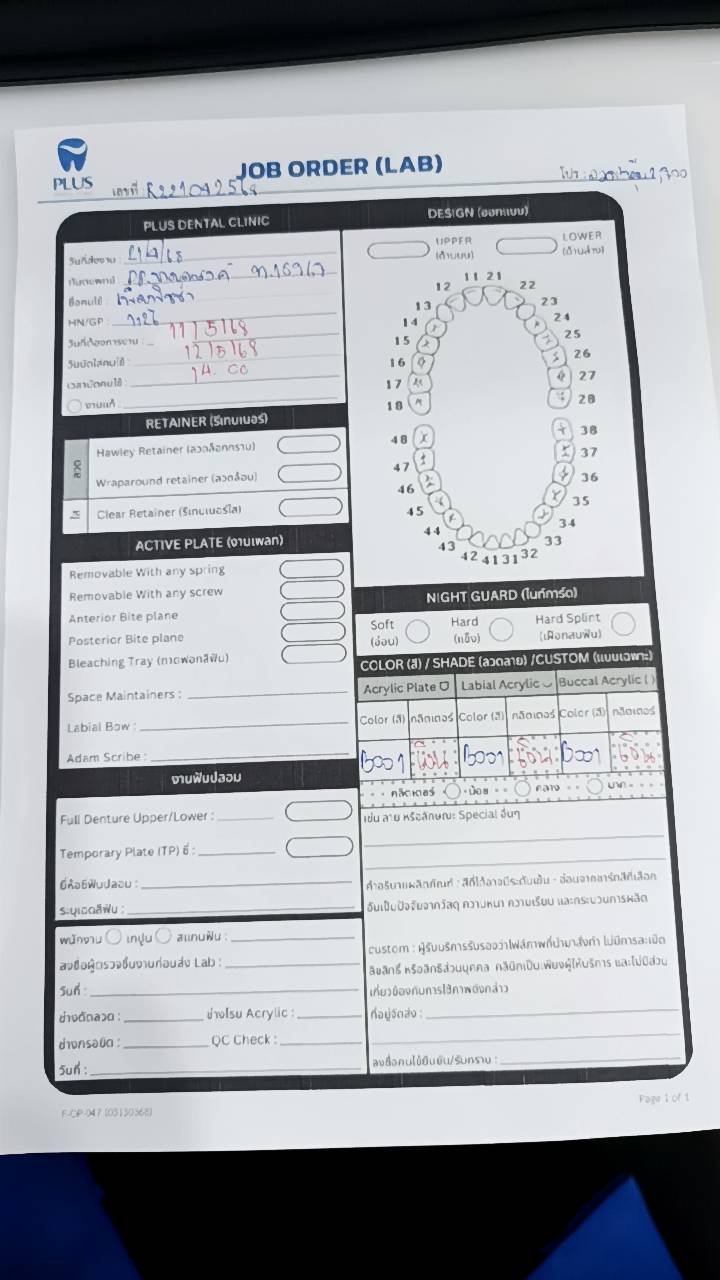 PLUS
JOB ORDER (LAB)
เลขที่ R221042568
โปร : 2,700
PLUS DENTAL CLINIC
วันที่ส่งงาน : 21/4/68
ทันตแพทย์
ชื่อคนไข้
HN/GP :
วันที่ต้องการงาน : 11/5/68
วันนัดใส่คนไข้ : 12/5/68
เวลานัดคนไข้ : 14.00
งานแก้ :
RETAINER (รีเทนเนอร์)
ลวด
Hawley Retainer (ลวดล็อกกราม)
Wraparound retainer (ลวดล้อม)
ใส
Clear Retainer (รีเทนเนอร์ใส)
ACTIVE PLATE (งานเพลท)
Removable With any spring
Removable With any screw
Anterior Bite plane
Posterior Bite plane
Bleaching Tray (ถาดฟอกสีฟัน)
Space Maintainers :
Labial Bow :
Adam Scribe :
งานฟันปลอม
Full Denture Upper/Lower :
Temporary Plate (TP) ซี่ :
ยี่ห้อซี่ฟันปลอม :
ระบุเฉดสีฟัน :
พนักงาน เทปูน สแกนฟัน :
ลงชื่อผู้ตรวจชิ้นงานก่อนส่ง Lab :
วันที่ :
ช่างดัดลวด : ช่างโรย Acrylic :
ช่างกรอขัด : QC Check :
วันที่ :
DESIGN (ออกแบบ)
UPPER
(ด้านบน)
LOWER
(ด้านล่าง)
11 21
12 22
13 23
14 24
15 25
16 26
17 27
18 28
48 38
47 37
46 36
45 35
44 34
43 33
42 41 31 32
NIGHT GUARD (ไนท์การ์ด)
Soft
(อ่อน)
Hard
(แข็ง)
Hard Splint
(เฝือกสบฟัน)
COLOR (สี) / SHADE (ลวดลาย) /CUSTOM (แบบเฉพาะ)
Acrylic Plate Labial Acrylic Buccal Acrylic ( )
Color (สี) กลิตเตอร์ Color (สี) กลิตเตอร์ Color (สี) กลิตเตอร์
B001 เงิน B001 เงิน B001 เงิน
กลิตเตอร์ น้อย กลาง มาก
เช่น ลาย หรือลักษณะ Special อื่นๆ
คำอธิบายผลิตภัณฑ์ : สีที่ได้อาจมีระดับเข้ม - อ่อนจากชาร์ทสีที่เลือก
อันเป็นปัจจัยจากวัสดุ ความหนา ความเรียบ และกระบวนการผลิต
custom : ผู้รับบริการรับรองว่าไฟล์ภาพที่นำมาสั่งทำ ไม่มีการละเมิด
ลิขสิทธิ์ หรือสิทธิส่วนบุคคล คลินิกเป็นเพียงผู้ให้บริการ และไม่มีส่วน
เกี่ยวข้องกับการใช้ภาพดังกล่าว
ที่อยู่จัดส่ง :
ลงชื่อคนไข้ยืนยัน/รับทราบ :
Page 1 of 1